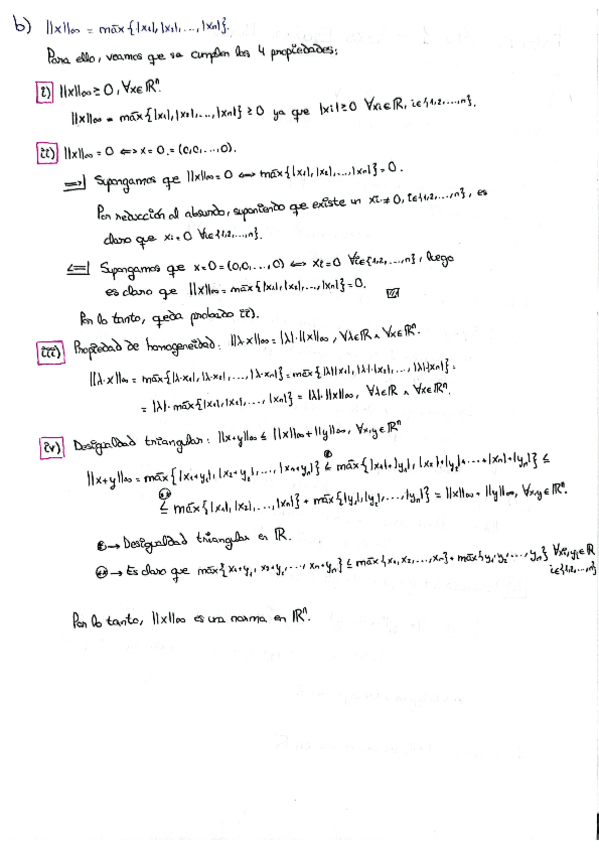 b) ||x||∞ = máx{|x₁|, |x₂|, ..., |xₙ|}.
Para ello, veamos que se cumplen las 4 propiedades:
i) ||x||∞ ≥ 0, ∀x∈ℝⁿ.
||x||∞ = máx{|x₁|, |x₂|, ..., |xₙ|} ≥ 0 ya que |xᵢ| ≥ 0 ∀xᵢ∈ℝ, i∈{1,2,...,n}.
ii) ||x||∞ = 0 ⟺ x = 0 = (0,0,...,0).
⟹| Supongamos que ||x||∞ = 0 ⟺ máx{|x₁|, |x₂|, ..., |xₙ|} = 0.
Por reducción al absurdo, suponiendo que existe un xᵢ ≠ 0, i∈{1,2,...,n}, es
claro que xᵢ = 0 ∀i∈{1,2,...,n}.
⟸| Supongamos que x = 0 = (0,0,...,0) ⟺ xᵢ = 0 ∀i∈{1,2,...,n}, luego
es claro que ||x||∞ = máx{|x₁|, |x₂|, ..., |xₙ|} = 0.
Por lo tanto, queda probado ii).
iii) Propiedad de homogeneidad: ||λ·x||∞ = |λ|·||x||∞, ∀λ∈ℝ ∧ ∀x∈ℝⁿ.
||λ·x||∞ = máx{|λ·x₁|, |λ·x₂|, ..., |λ·xₙ|} = máx{|λ||x₁|, |λ|·|x₂|, ..., |λ||xₙ|} =
= |λ|·máx{|x₁|, |x₂|, ..., |xₙ|} = |λ|·||x||∞, ∀λ∈ℝ ∧ ∀x∈ℝⁿ.
iv) Desigualdad triangular: ||x+y||∞ ≤ ||x||∞ + ||y||∞, ∀x,y∈ℝⁿ
||x+y||∞ = máx{|x₁+y₁|, |x₂+y₂|, ..., |xₙ+yₙ|} ≤ máx{|x₁|+|y₁|, |x₂|+|y₂|, ..., |xₙ|+|yₙ|} ≤
≤ máx{|x₁|, |x₂|, ..., |xₙ|} + máx{|y₁|, |y₂|, ..., |yₙ|} = ||x||∞ + ||y||∞, ∀x,y∈ℝⁿ.
→ Desigualdad triangular en ℝ.
(**) → Es claro que máx{x₁+y₁, x₂+y₂, ..., xₙ+yₙ} ≤ máx{x₁, x₂, ..., xₙ} + máx{y₁, y₂, ..., yₙ} ∀xᵢ,yᵢ∈ℝ
i∈{1,2,...,n}
Por lo tanto, ||x||∞ es una norma en ℝⁿ.